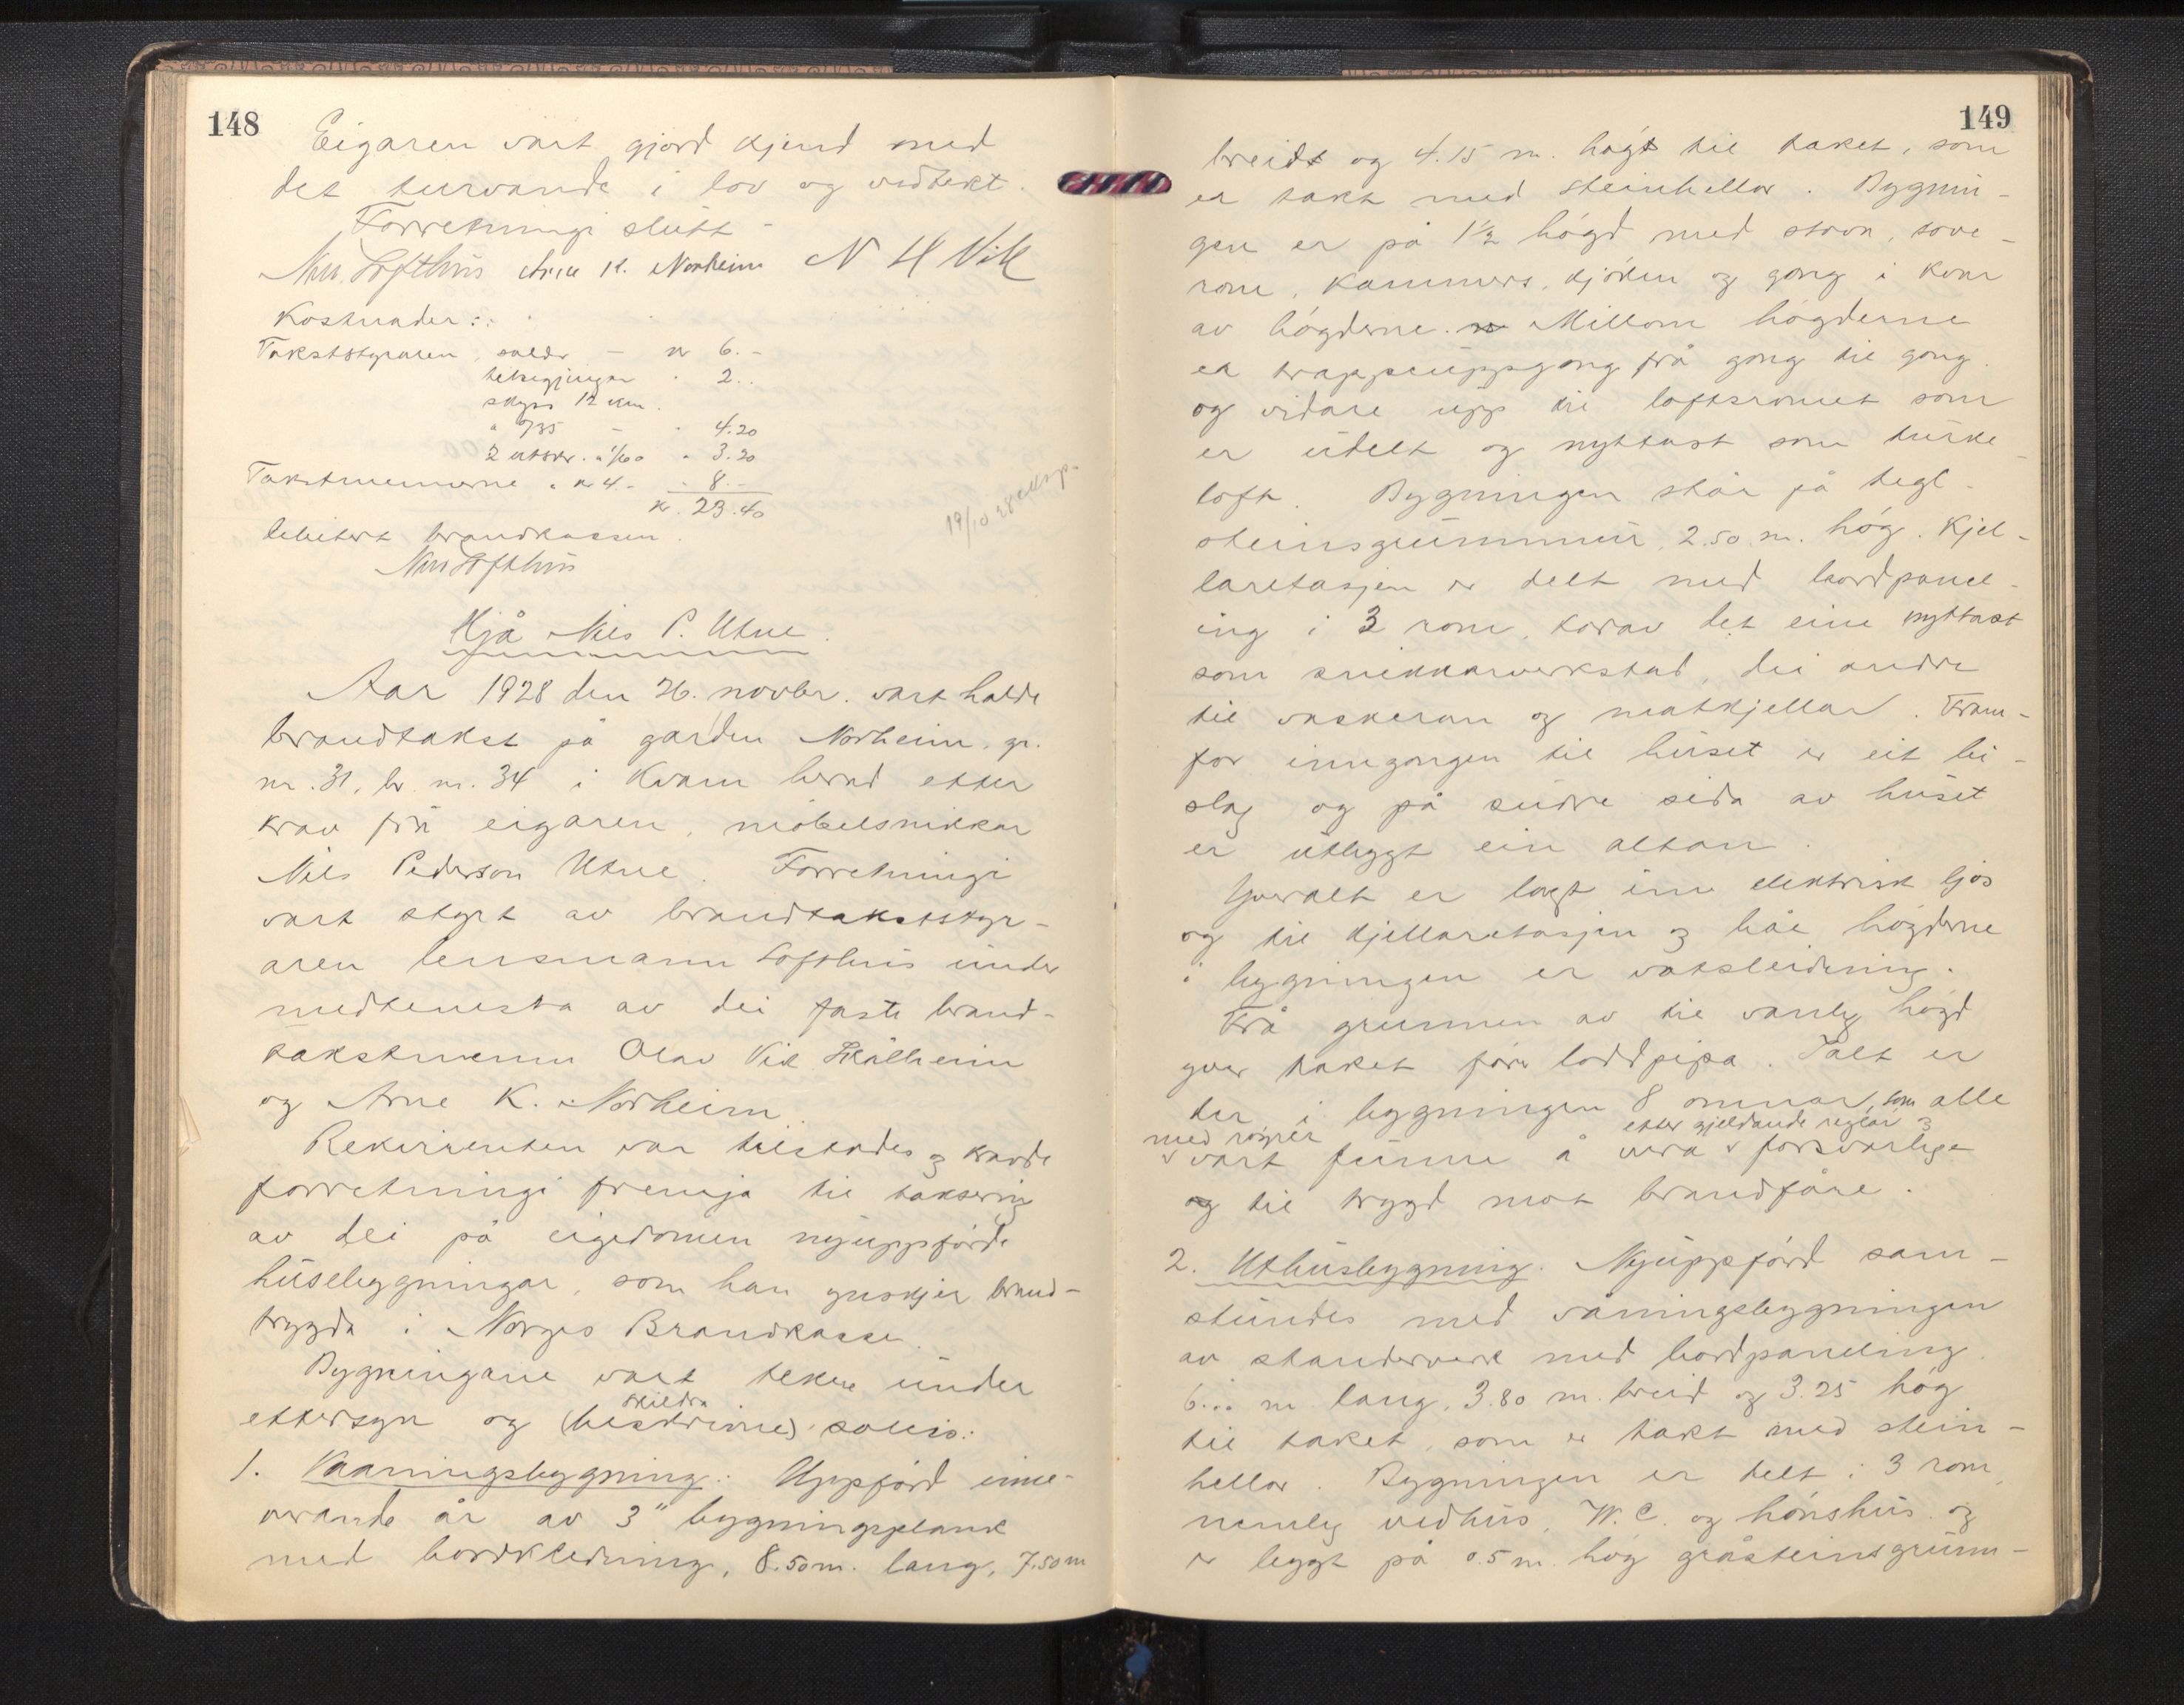 148
Eigaren vart gjord kjend med
det turvande i lov og vedtekt.
Forretningi slutt -
Arne K. Norheim N H Vik
Kostnader:
Takststyraren, salær - kr 6.-
tilsegjingar " 2..
skyss 12 km.
a 0/35 - " 4.20
2 utskr. a 1/60 " 3.20
Takstmennerne a kr 4.- " 8.-
kr. 23.40
19/10 28
debitert brandkassen.
Hjå Nils P. Utne.
Aar 1928 den 26. novbr. vart halde
brandtakst på garden Norheim, gr.
nr. 31, br. nr. 34 i Kvam herad etter
krav frå eigaren, møbelsnikkar
Nils Pederson Utne. Forretningi
vart styrt av brandtakststyr-
aren lensmann Lofthus under
medtenesta av dei faste brand-
takstmenn Olav Vik Skålheim
og Arne K. Norheim.
Rekvirenten var tilstades og kravde
forretningi fremja til taksering
av dei på eigedomen nyuppførde
husebygningar, som han ynskjer brand-
trygda i Norges Brandkasse.
Bygningane vart tekne under
skildra
ettersyn og (beskrivne) soleis:
1. Vaaningsbygning: Uppførd inne-
verande år av 3" bygningsplank
med bordkledning, 8.50 m. lang, 7.50 m
149
breidt og 4.15 m. høgt til taket, som
er takt med steinhellor. Bygnin-
gen er på 1½ høgd med stova, sove-
rom, kammers, kjøken og gong i kvar
av høgderne. Millom høgderne
er trappeuppgong frå gong til gong
og vidare upp til loftsromet som
er udelt og nyttast som turke-
loft. Bygningen står på tegl-
steinsgrunnmur, 2.50 m. høg. Kjel-
laretasjen er delt med bordpanel-
ing i 3 rom, korav det eine nyttast
som snikkarverkstad, dei andre
til vaskerom og matkjellar. Fram-
for inngongen til huset er eit bi-
slag og på sudre sida av huset
er utbygt ein altan.
Yveralt er lagt inn elektrisk ljos
og til kjellaretasjen og båe høgderne
i bygningen er vatsleidning.
Frå grunnen av til vanleg høgd
yver taket fører loddpipa. Ialt er
der i bygningen 8 omnar, som alle
med røyrer etter gjeldande reglar og
vart funne å vera forsvarlege
og til trygd mot brandfåre.
2. Uthusbygning. Nyuppførd sam-
stundes med våningsbygningen
av standerverk med bordpaneling.
6.00 m lang, 3.80 m. breid og 3.25 høg
til taket, som er takt med stein-
hellor. Bygningen er delt i 3 rom,
nemleg vedhus, W.C. og hønshus og
er bygt på 0.5 m. høg gråsteinsgrunn-